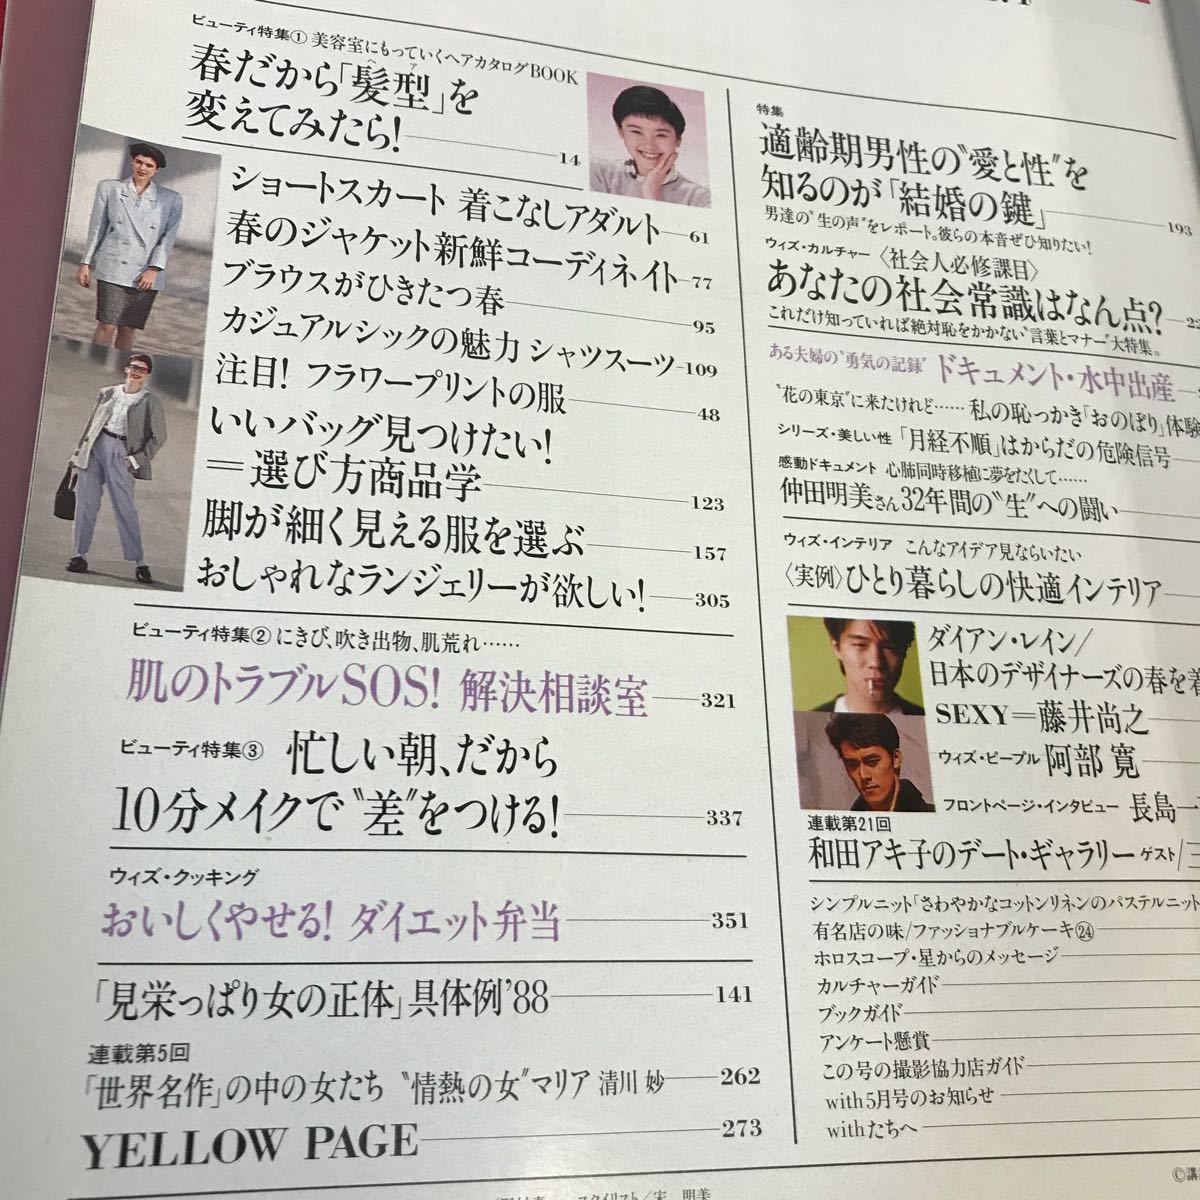 ビューティ特集① 美容室にもっていくヘアカタログBOOK
春だから「髪型」を
ヘア
変えてみたら! 14
ショートスカート 着こなしアダルト 61
春のジャケット新鮮コーディネイト 77
ブラウスがひきたつ春 95
カジュアルシックの魅力 シャツスーツ 109
注目! フラワープリントの服 48
いいバッグ見つけたい!
=選び方商品学 123
脚が細く見える服を選ぶ 157
おしゃれなランジェリーが欲しい! 305
ビューティ特集② にきび、吹き出物、肌荒れ……
肌のトラブルSOS! 解決相談室 321
ビューティ特集③ 忙しい朝、だから
10分メイクで〝差〟をつける! 337
ウィズ・クッキング
おいしくやせる! ダイエット弁当 351
「見栄っぱり女の正体」具体例'88 141
連載第5回
「世界名作」の中の女たち 〝情熱の女〟マリア 清川 妙 262
YELLOW PAGE 273
特集
適齢期男性の〝愛と性〟を
知るのが「結婚の鍵」 193
男達の〝生の声〟をレポート。彼らの本音ぜひ知りたい!
ウィズ・カルチャー 〈社会人必修課目〉
あなたの社会常識はなん点?
これだけ知っていれば絶対恥をかかない〝言葉とマナー〟大特集。
ある夫婦の〝勇気の記録〟 ドキュメント・水中出産
〝花の東京〟に来たけれど…… 私の恥っかき「おのぼり」体験
シリーズ・美しい性 「月経不順」はからだの危険信号
感動ドキュメント 心肺同時移植に夢をたくして……
仲田明美さん32年間の〝生〟への闘い
ウィズ・インテリア こんなアイデア見ならいたい
〈実例〉ひとり暮らしの快適インテリア
ダイアン・レイン/
日本のデザイナーズの春を着
SEXY=藤井尚之
ウィズ・ピープル 阿部 寛
フロントページ・インタビュー 長島一
連載第21回
和田アキ子のデート・ギャラリー ゲスト/三
シンプルニット「さわやかなコットンリネンのパステルニット
有名店の味/ファッショナブルケーキ㉔
ホロスコープ・星からのメッセージ
カルチャーガイド
ブックガイド
アンケート懸賞
この号の撮影協力店ガイド
with5月号のお知らせ
withたちへ
©講
スタイリスト/宋 明美